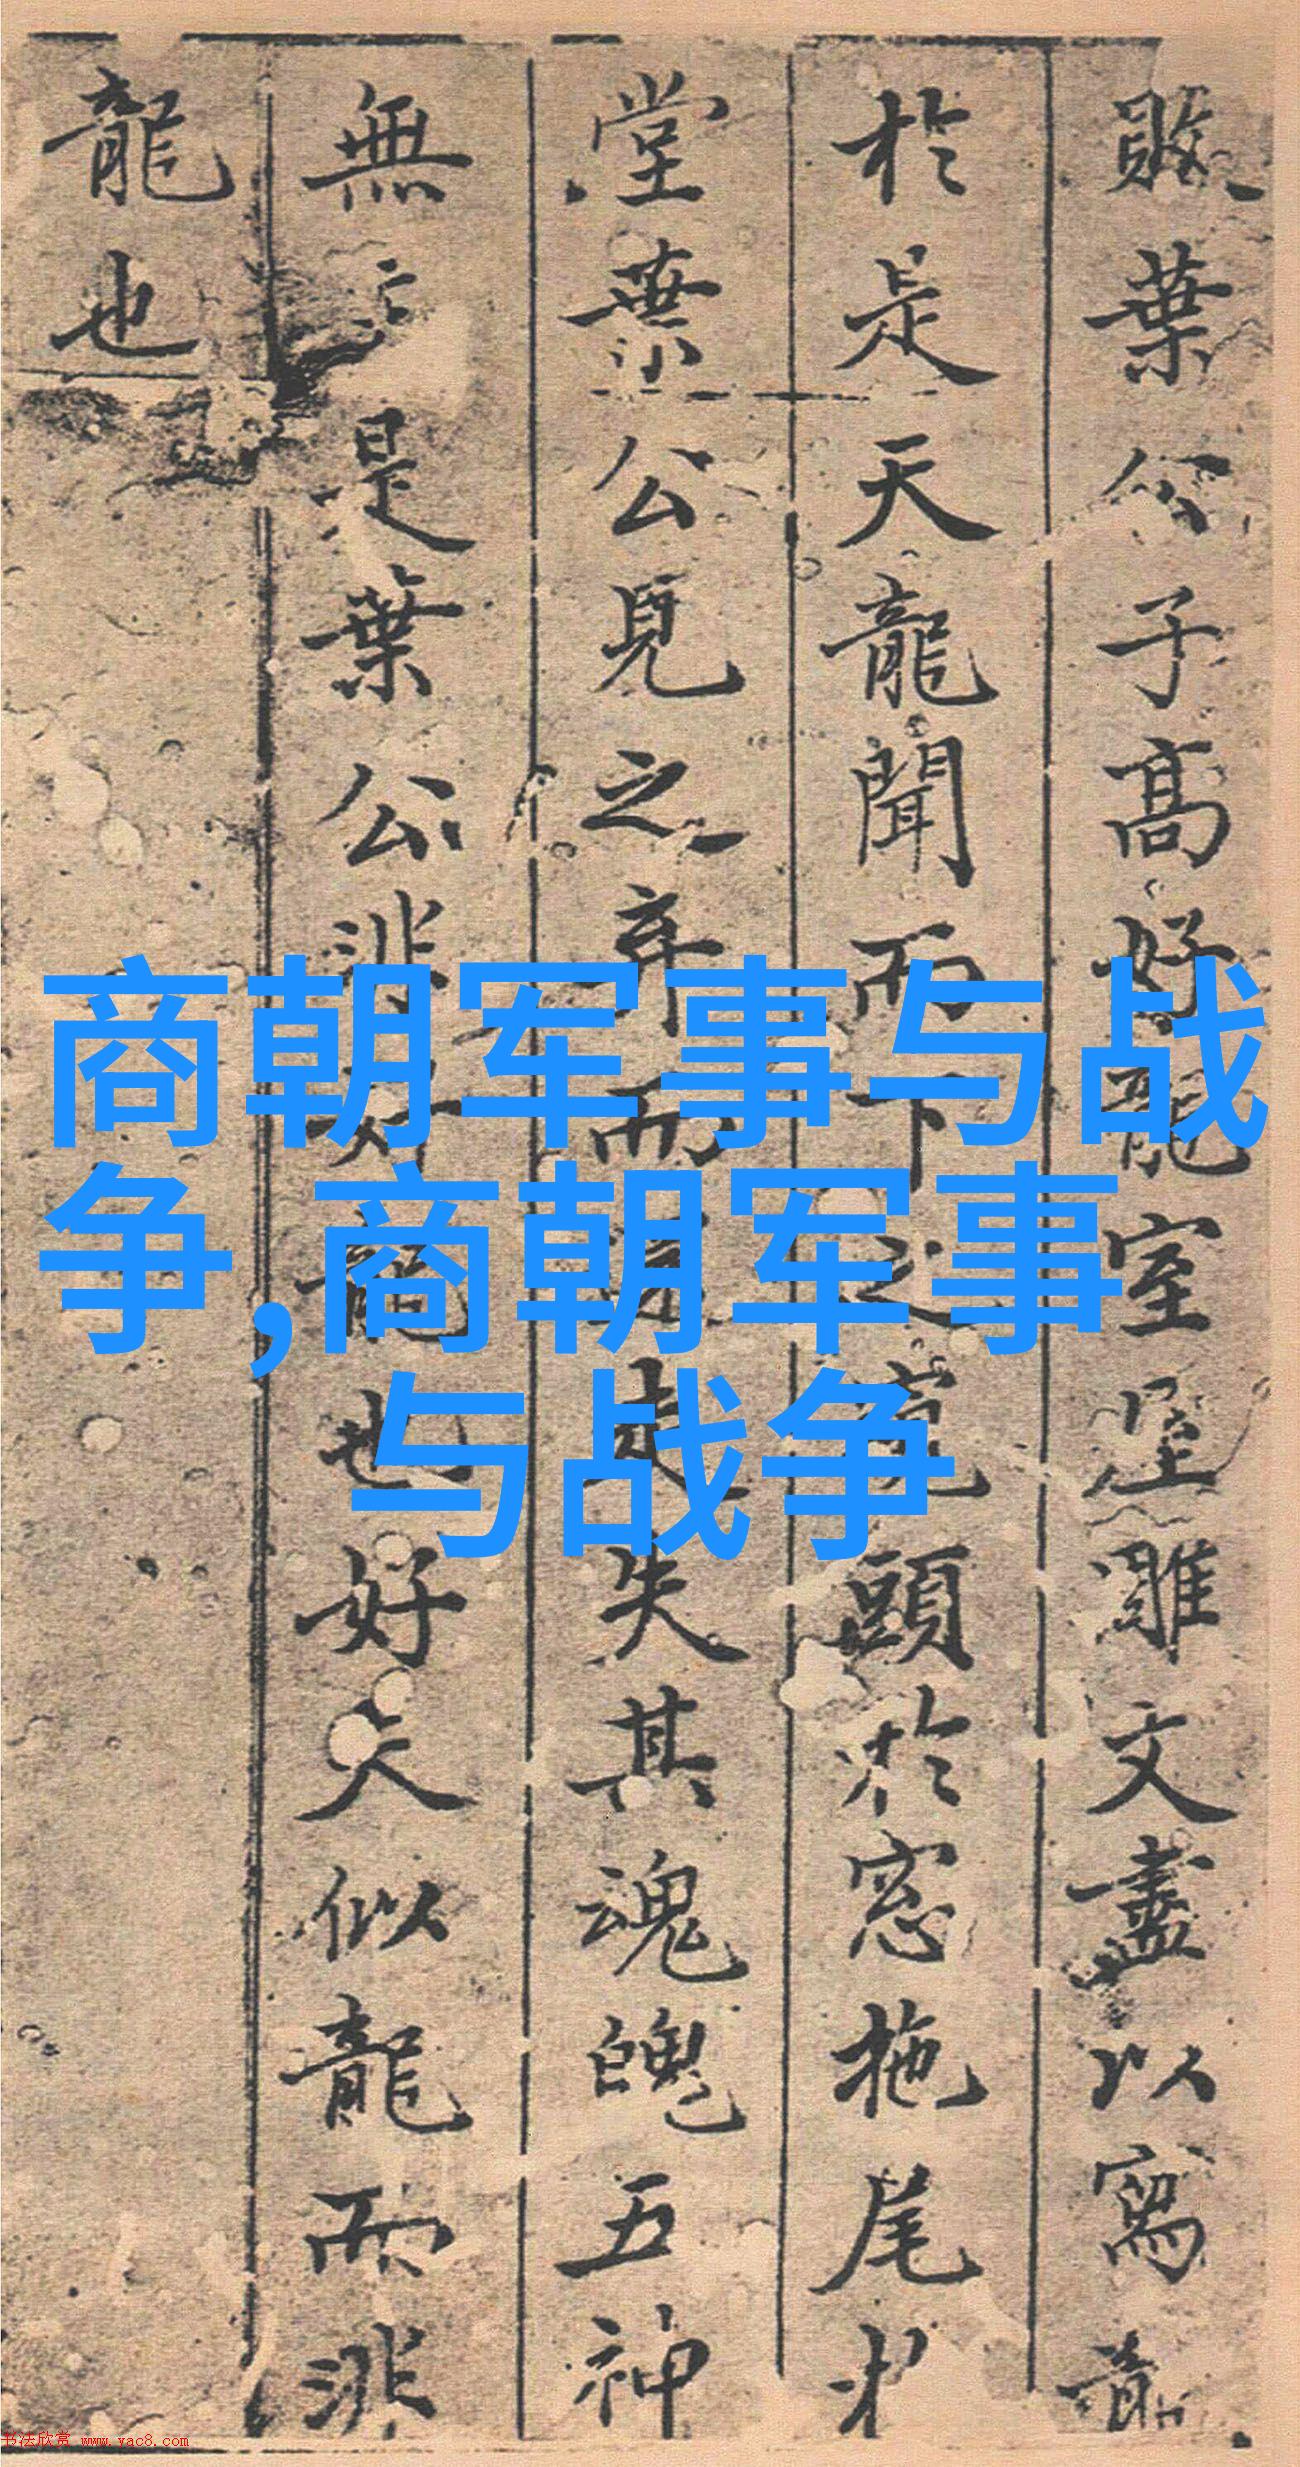 敗葉公子高好龍室屋雕文盡以寫龍
於是天龍聞而下之窺頭於窓拖尾於
堂葉公見之弃而還走失其魂魄五神
無主是葉公非好龍也好夫似龍而非
龍也
商朝军事与战
争,商朝军事
与战争
书法欣赏 www.yac8.com